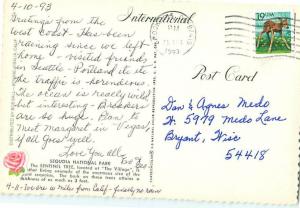 4-10-93
Greetings from the
West Coast - Has been
raining since we left
home - visited friends
in Seattle - Portland etc
the traffic is horrendous
The ocean is really wild
but interesting - Breakers
are so huge. Plan to
meet Margaret in Vegas,
if all goes well.
Love you all
SEQUOIA NATIONAL PARK
THE SENTINEL TREE, located at "The Village", is
4-11- We are 10 miles from Calif - finally no rain
International
19 USA
PM
1993
Post Card
Don & Agnes Medo
W. 5979 Medo Lane
Bryant, Wisc
54418